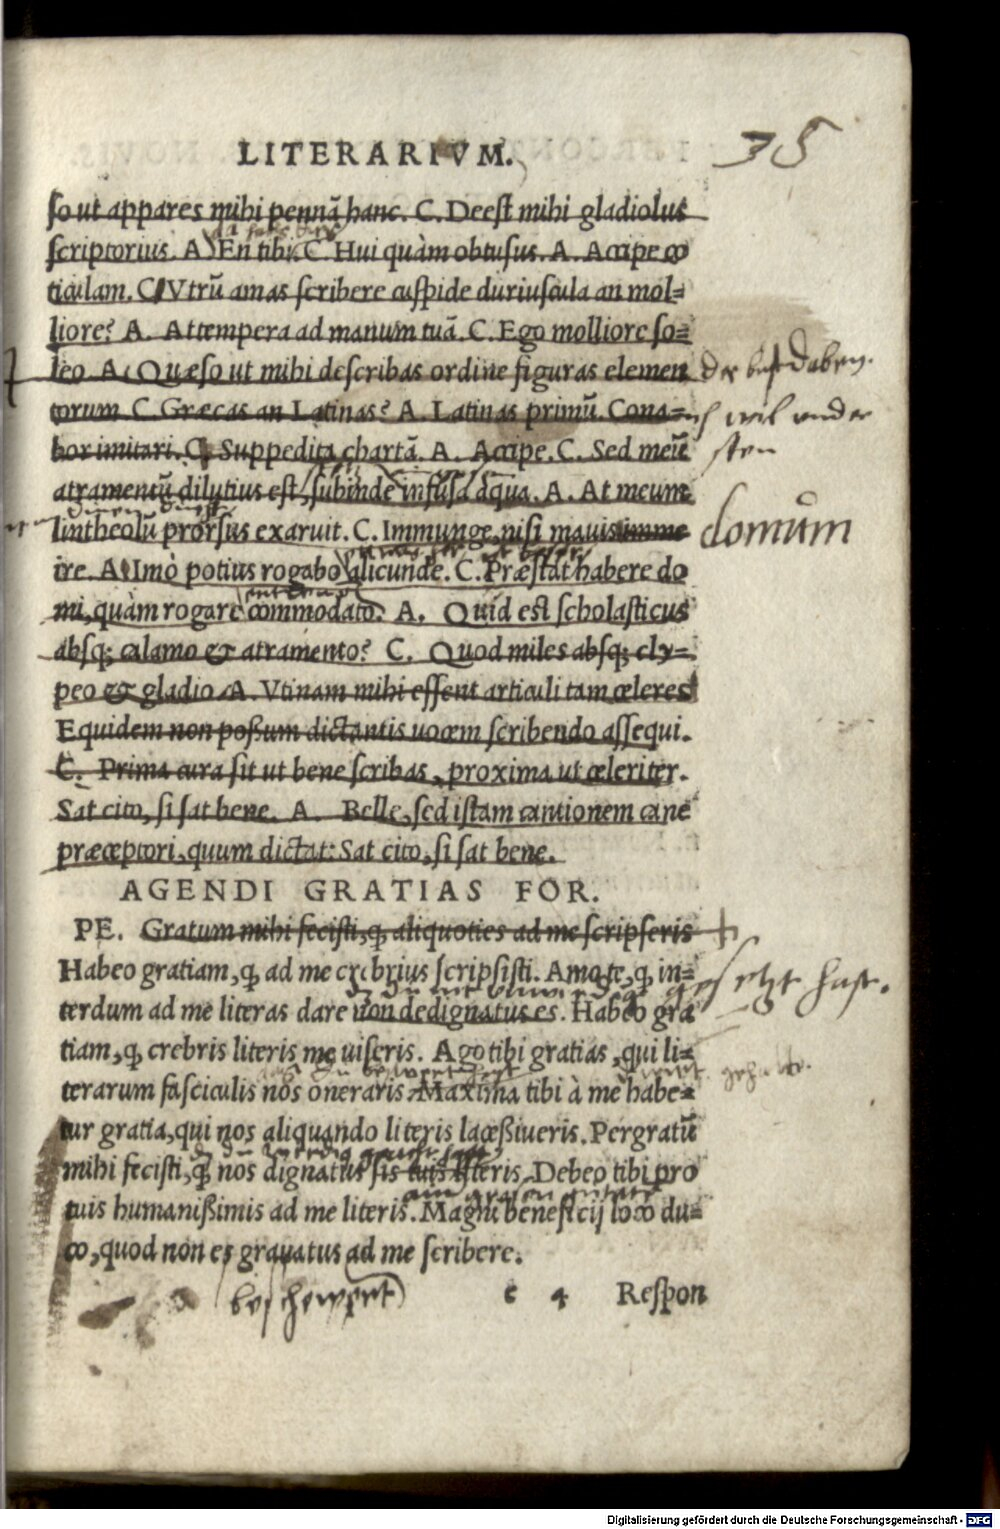 LITERARIVM. 35
so ut appares mihi pennã hanc. C. Deest mihi gladiolus
scriptorius. A. En tibi. C. Hui quàm obtusus. A. Accipe co
ticulam. C. Vtrũ amas scribere cuspide duriuscula an mol=
liore? A. Attempera ad manum tuã. C. Ego molliore so=
leo. A. Quæso ut mihi describas ordine figuras elemen
torum C. Græcas an Latinas? A. Latinas primũ. Cona=
bor imitari. C. Suppedita chartã. A. Accipe. C. Sed meũ
sten
atramentũ dilutius est, subinde infusa aqua. A. At meum
lintheolũ prorsus exaruit. C. Immunge, nisi mauis imme
domum
ire. A. Imò potius rogabo alicunde. C. Præstat habere do
mi, quàm rogare commodato. A. Quid est scholasticus
absq; calamo & atramento? C. Quod miles absq; cly=
peo & gladio. A. Vtinam mihi essent articuli tam celeres
Equidem non poßum dictantis uocem scribendo assequi.
C. Prima cura sit ut bene scribas, proxima ut celeriter.
Sat cito, si sat bene. A. Belle, sed istam cantionem cane
præceptori, quum dictat: Sat cito, si sat bene.
AGENDI GRATIAS FOR.
PE. Gratum mihi fecisti, ꝙ aliquoties ad me scripseris
Habeo gratiam, ꝙ ad me crebrius scripsisti. Amo te, ꝙ in=
gesetzt hast.
terdum ad me literas dare non dedignatus es. Habeo gra
tiam, ꝙ crebris literis me uiseris. Ago tibi gratias, qui li=
terarum fasciculis nos oneraris. Maxima tibi à me habe=
tur gratia, qui nos aliquando literis laceßiueris. Pergratũ
mihi fecisti, ꝙ nos dignatus sis tuis literis. Debeo tibi pro
tuis humanißimis ad me literis. Magni beneficij loco du=
co, quod non es grauatus ad me scribere.
beschewert
c 4 Respon
Digitalisierung gefördert durch die Deutsche Forschungsgemeinschaft - DFG